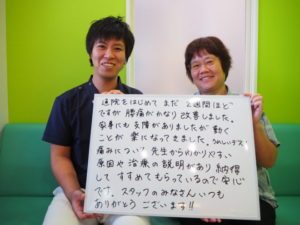 通院をはじめて まだ 2週間ほど
ですが 腰痛がかなり 改善しました。
家事にも 支障がありましたが 動く
ことが 楽になってきました。うれしいデス
痛みについて 先生からわかりやすい
原因や治療の説明があり 納得
して すすめてもらっているので 安心
です。スタッフのみなさん いつも
ありがとう ございます!!